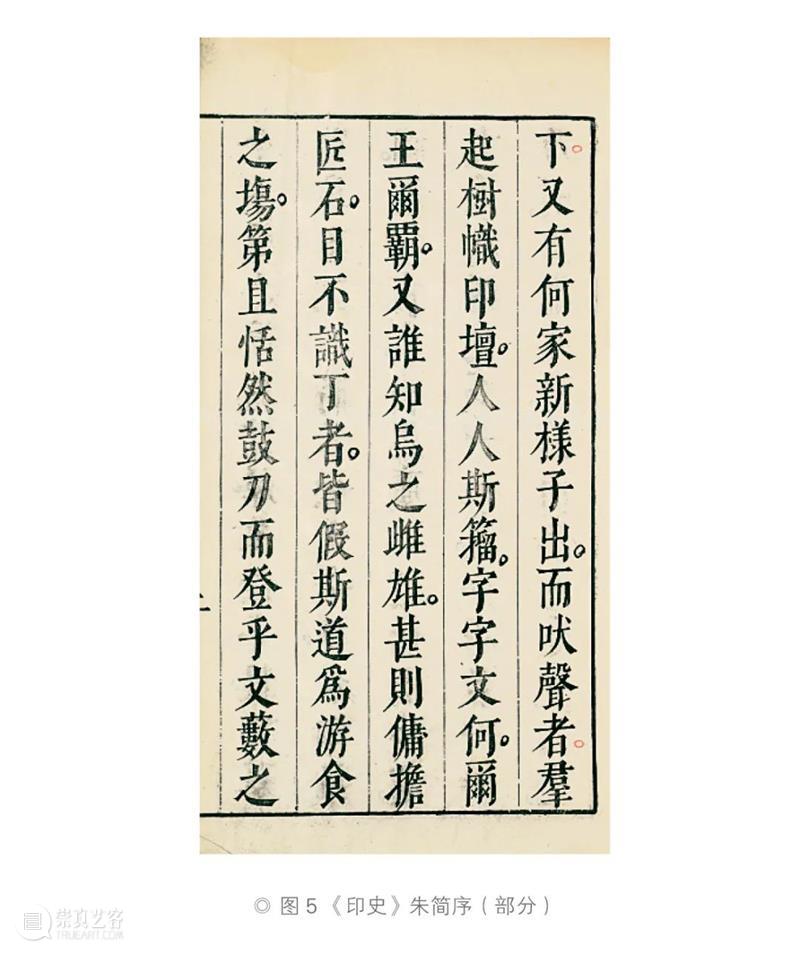 下。又有何家新樣子出。而吠聲者。羣
起樹幟印壇。人人斯籕。字字文何。爾
王爾覇。又誰知烏之雌雄。甚則傭擔
匠石。目不識丁者。皆假斯道爲游食
之塲。第且恬然鼓刀而登乎文藪之
◎ 图5《印史》朱简序（部分）
崇真艺客
TRUEART.COM